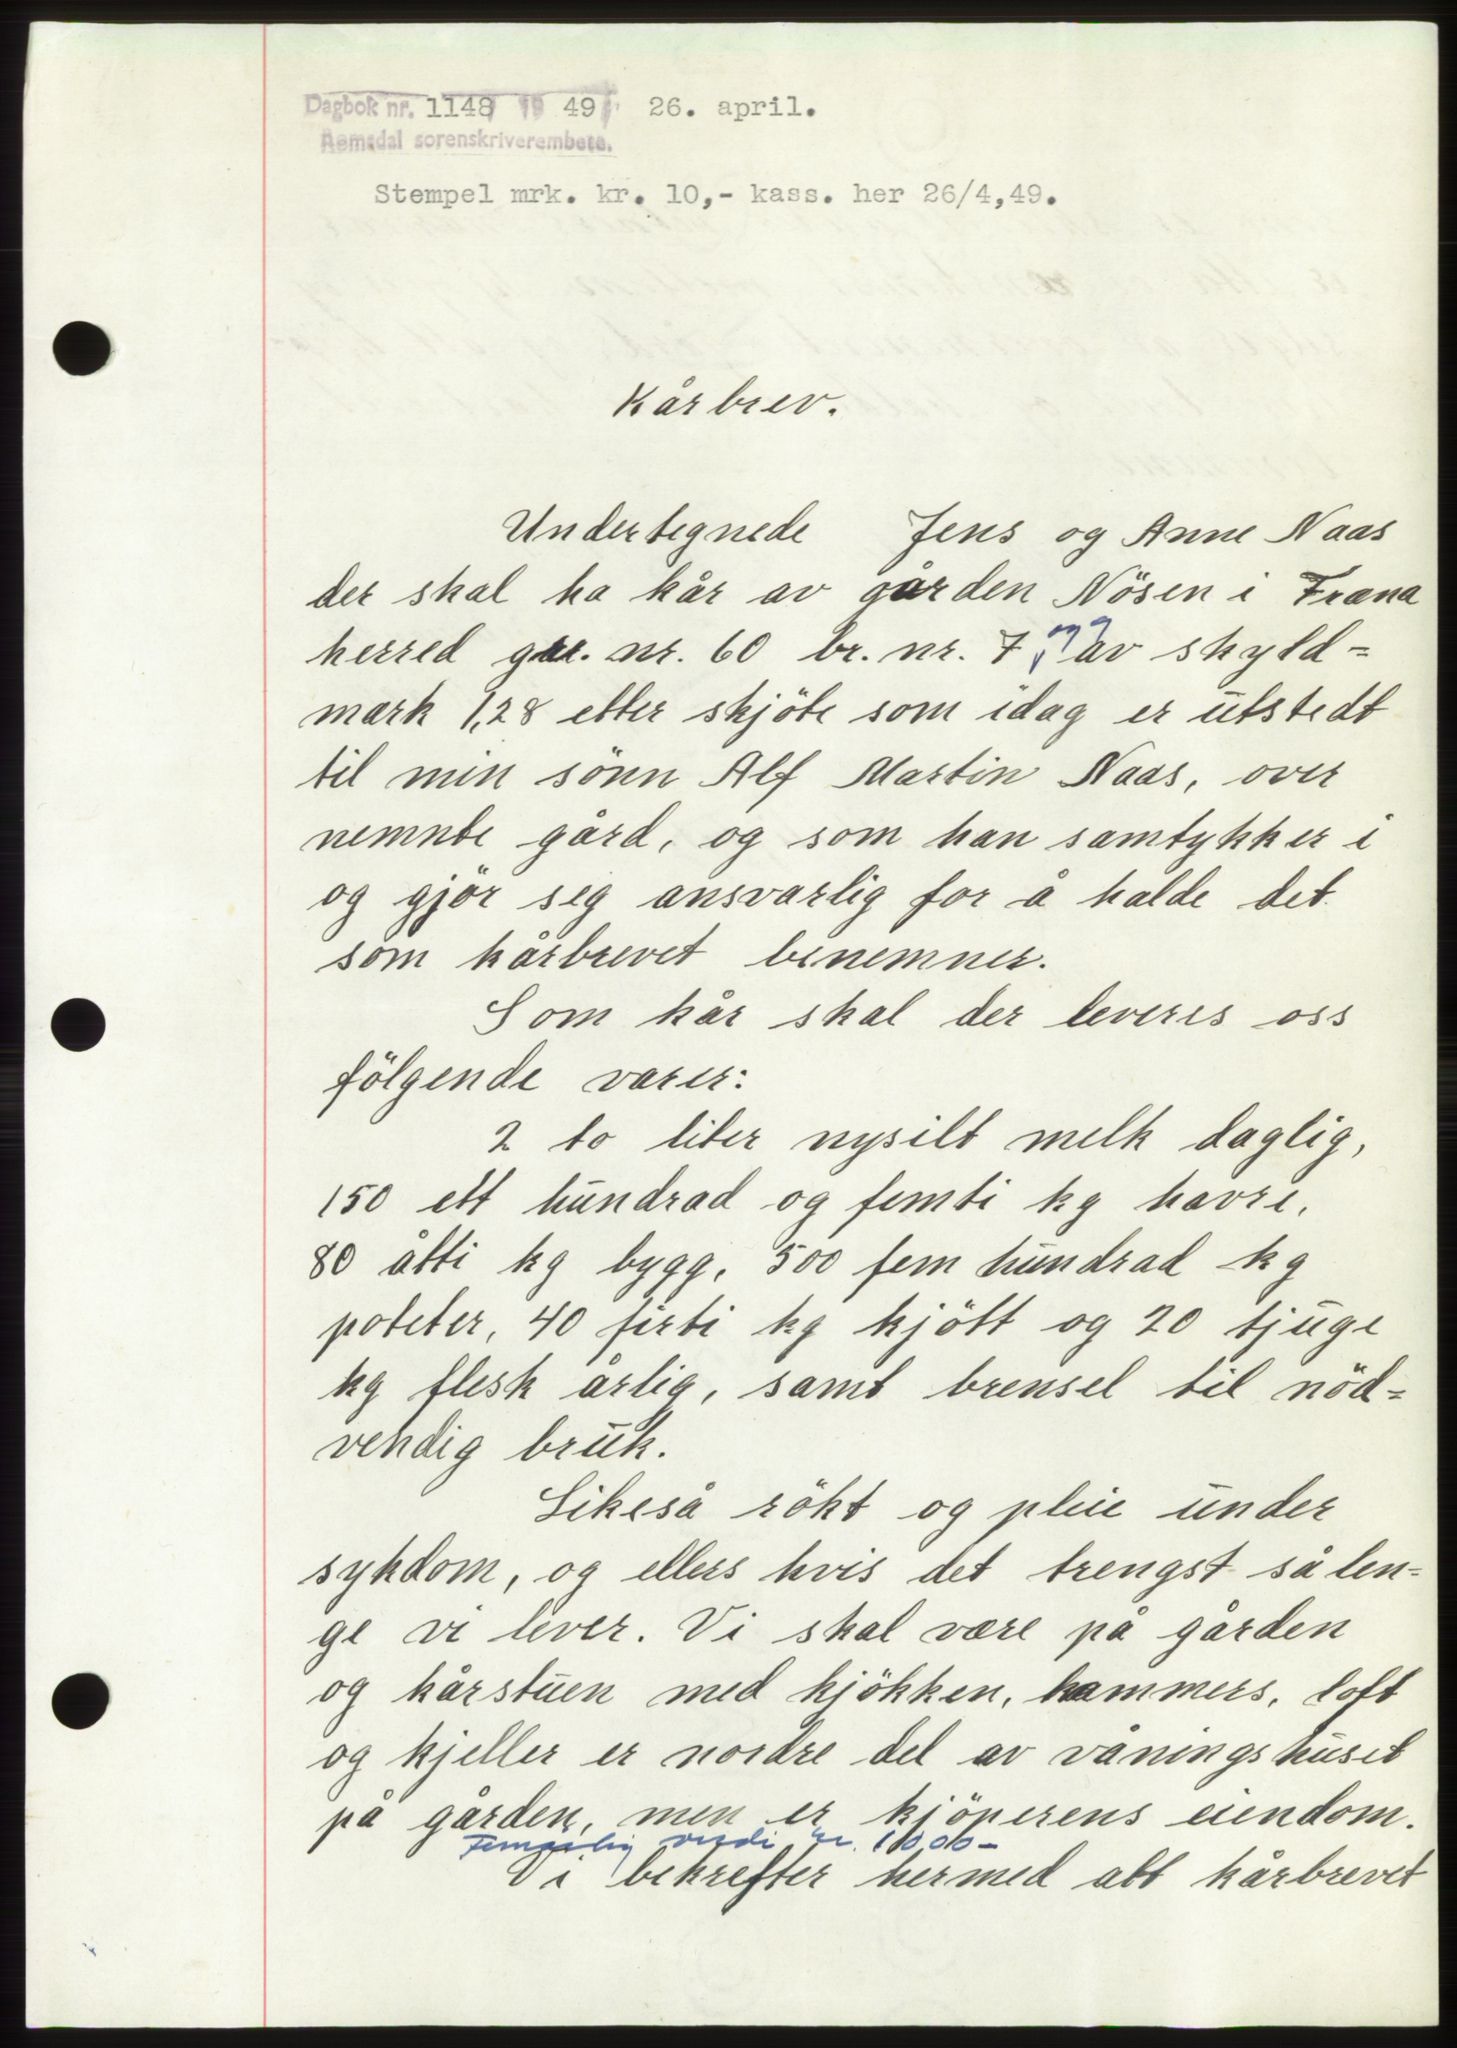 Dagbok nr. 1148 19 49 26. april.
Romsdal sorenskriverembete.
Stempel mrk. kr. 10,- kass. her 26/4,49.
Kårbrev.
Undertegnede Jens og Anne Naas
der skal ha kår av gården Nösen i Fræna
herred gar. nr. 60 br. nr. 7 og 9 av skyld=
mark 1,28 etter skjöte som idag er utstedt
til min sönn Alf Martin Naas, over
nemnte gård, og som han samtykker i
og gjör seg ansvarlig for å halde det
som kårbrevet benemner.
Som kår skal der leveres oss
fölgende varer:
2 to liter nysilt melk daglig,
150 ett hundrad og femti kg havre,
80 åtti kg bygg, 500 fem hundrad kg
poteter, 40 firti kg kjött og 20 tjuge
kg flesk årlig, samt brensel til nöd=
vendig bruk.
Likeså rökt og pleie under
sykdom, og ellers hvis det trengst så len=
ge vi lever. Vi skal være på gården
og kårstuen med kjökken, kammers, loft
og kjeller er nordre del av våningshuset
på gården, men er kjöperens eiendom.
Femårlig verdi kr. 1000-
Vi bekrefter hermed att kårbrevet